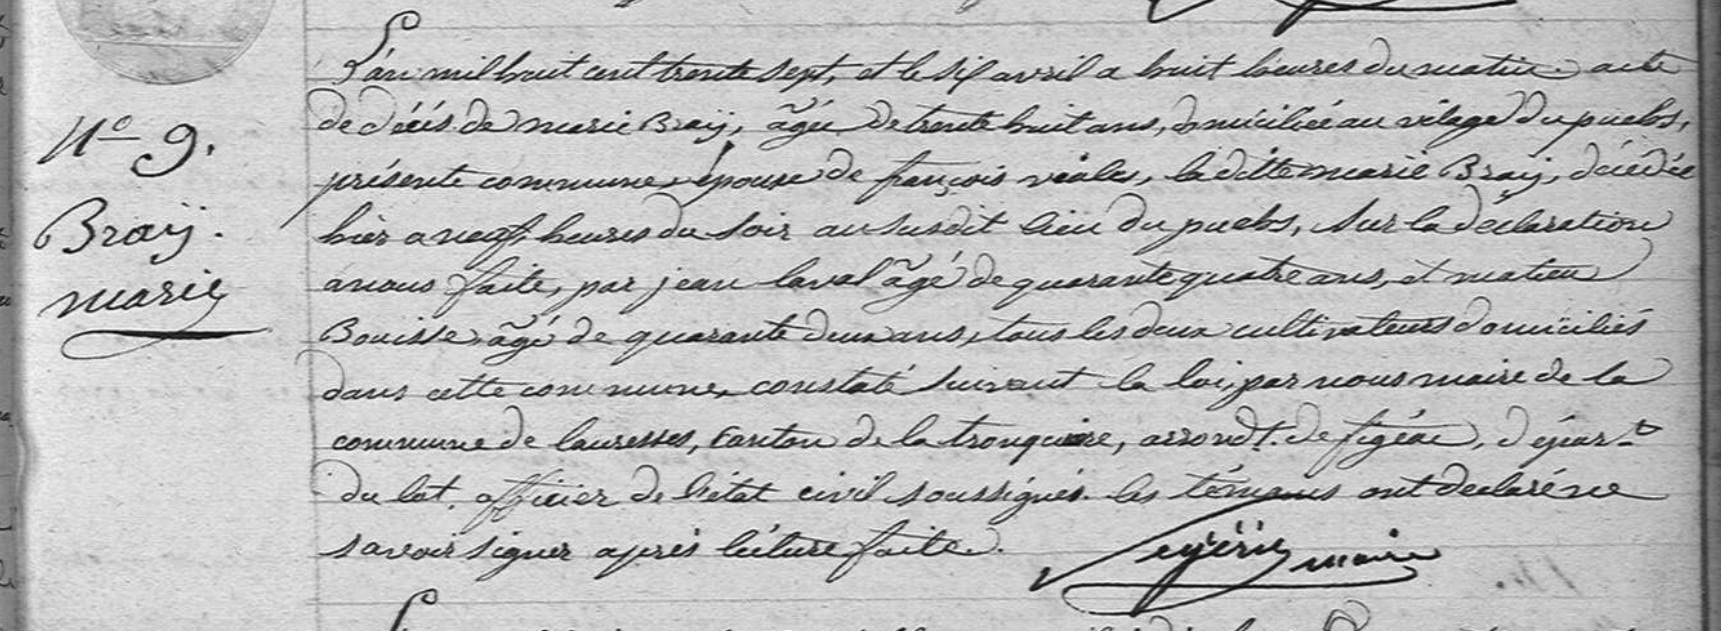 L'an mil huit cent trente sept, et le six avril a huit heures du matin. acte
de décés de marie Braÿ, âgée de trente huit ans, domiciliée au vilage du puebs,
N° 9. présente commune, épouse de françois viales, la ditte marie Braÿ, décédée
Braÿ. hier a neuf heures du soir au susdit lieu du puebs, sur la déclaration
marie a nous faite, par jean laval âgé de quarante quatre ans, et matieu
Bouisse, âgé de quarante deux ans, tous les deux cultivateurs domiciliés
dans cette commune, constaté suivant la loi, par nous maire de la
commune de lauresses, canton de la tronquiere, arrondt. de figéac, dépar-t
du lot, officier de l'état civil soussignés. les témoins ont declaré ne
savoir signer aprés lécture faite.
maire